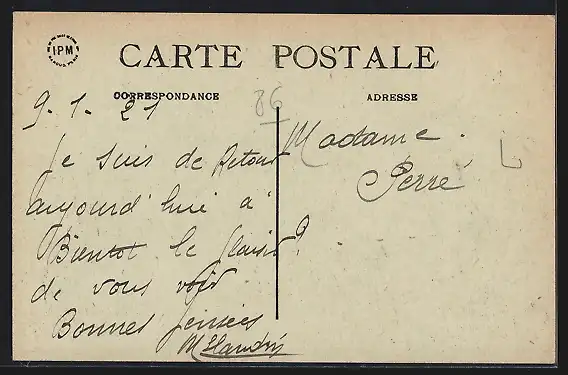 IPM
CARTE POSTALE
CORRESPONDANCE
ADRESSE
86
9.1.21
Je suis de Retour
aujourd'hui à
Bientot le plaisir
de vous voir
Bonnes pensées
Madame
Perré